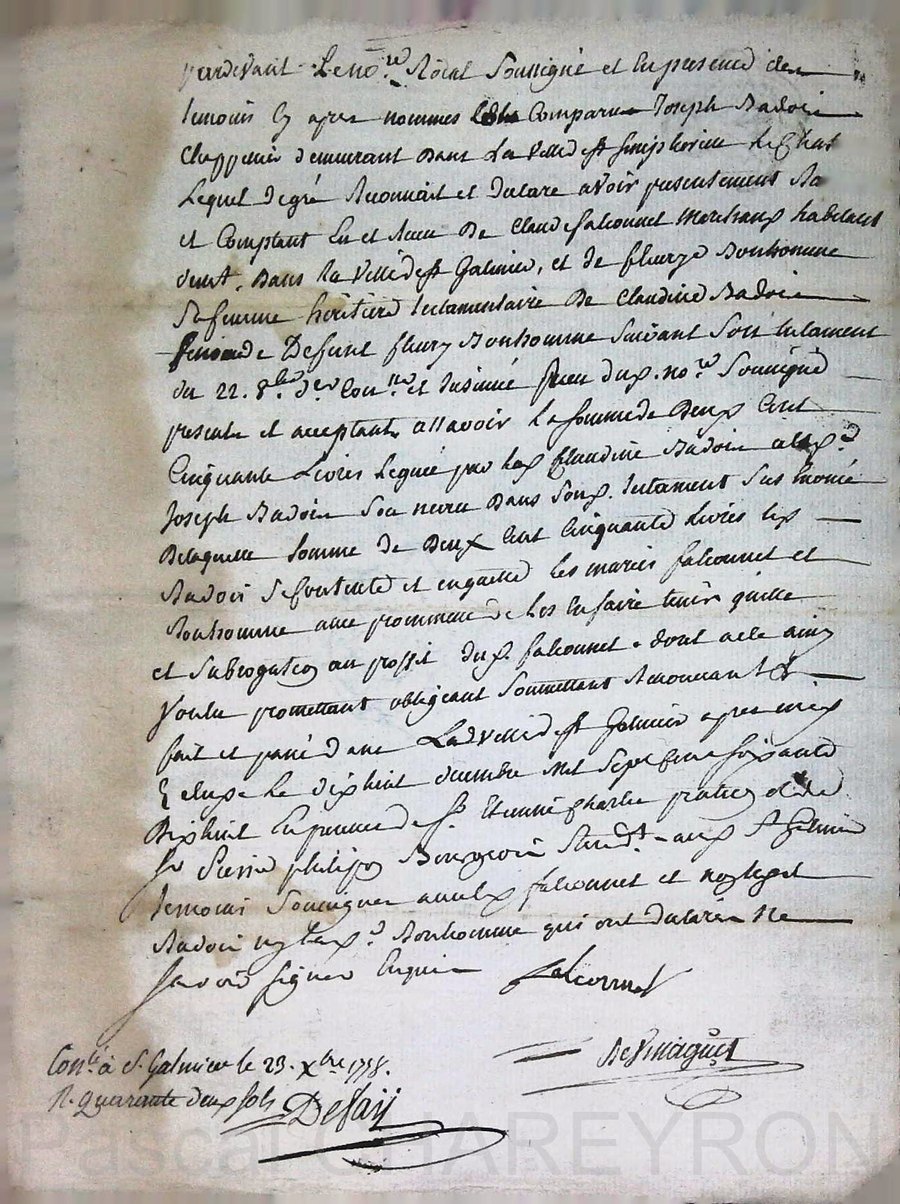 pardevant Le no.re Roial Soussigné et En presence des
temoins Cy apres nommes Comparu Joseph Badoin
Chappelier demeurant Dans La ville de St Simphorien Le Chat
Lequel de gré Reconnait et declare avoir presentement
et Comptant Eu et Receu De Claude falconnet Marchand habitant
demt. Dans La Ville de St Galmier, et de fleurye Bonhomme
Sa femme heritiere testamentaire De Claudine Badoin
De Defunt fleury Bonhomme Suivant Son testament
du 22. 8bre der Con.lé et Insinué Receu du no.re Soussigné
presents et acceptants, assavoir La Somme de Deux Cent
Cinquante Livres Leguée par Claudine Badoin
Joseph Badoin Son neveu Dans Son testament Sus Enoncé
De laquelle Somme de Deux Cent Cinquante Livres
Badoin Se Contente et en quitte Les mariés falconnet et
Bonhomme avec promesse de Les En faire tenir quitte
et Subrogation au proffit du falconnet. dont acte ainsy
Voulu promettant obligeant Soumettant Renonceant &
fait et passé dans Lad ville de St Galmier apres midy
Le dixhuit decembre Mil Sept Cent Soixante
Dixhuit En presence de Sr. Etienne Charle praticien et de
Sr Pierre philipon Bourgeois Resid.t aud St Galmier
temoins Soussignes avec falconnet et non Led
Badoin ny Bonhomme qui ont declaré Ne
Savoir Signer Enquis falconnet
Con.lé à St. Galmier le 23. Xbre 1778.
R. Quarante deux sols Defay